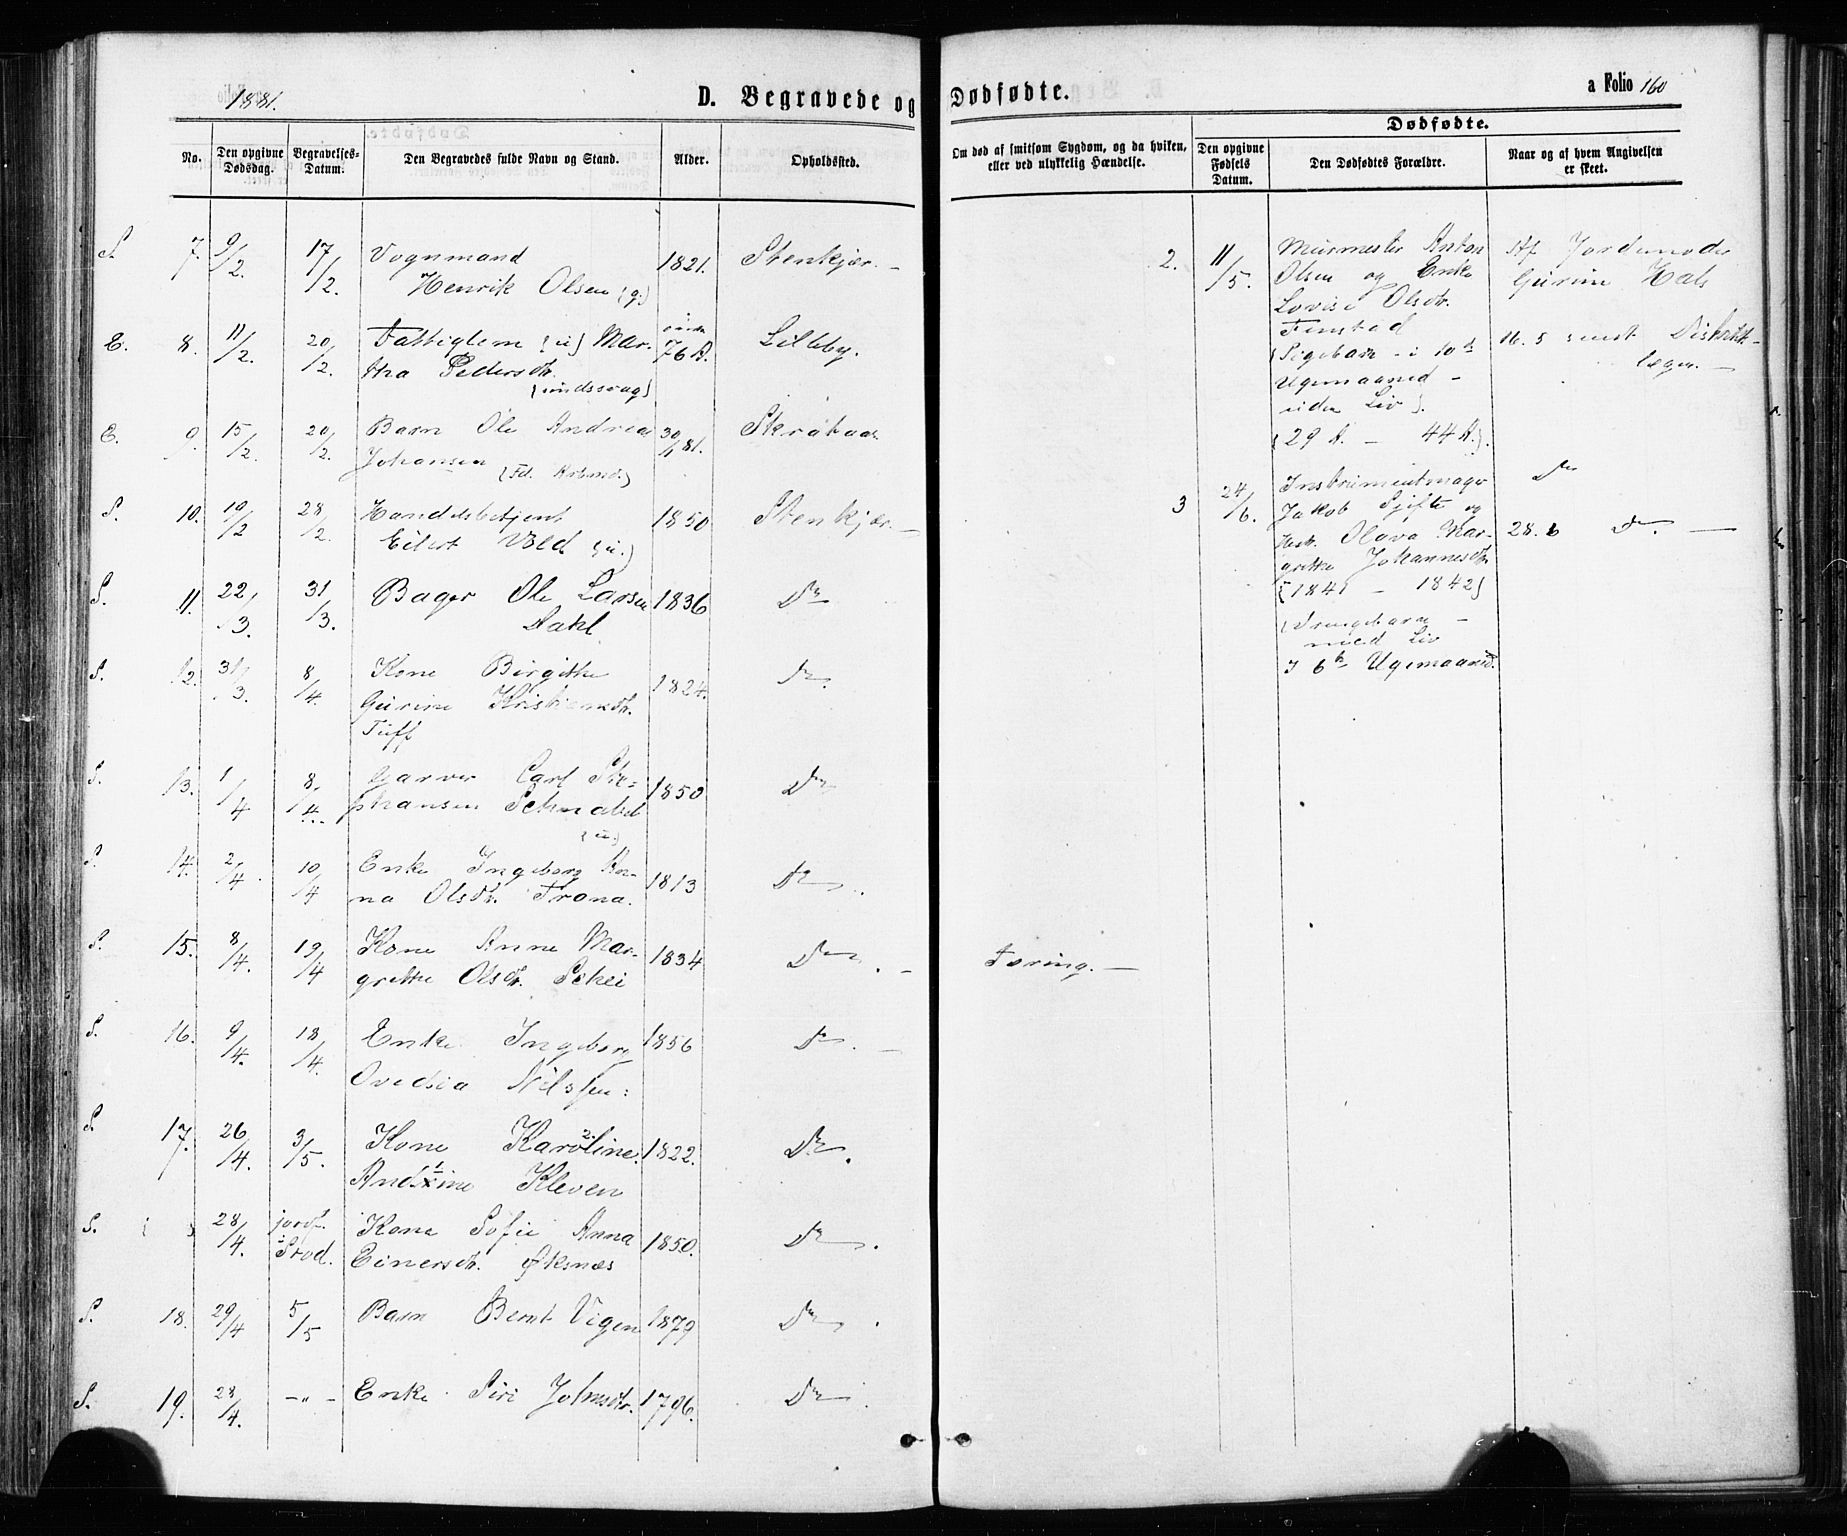 1881.
D. Begravede og Dødfødte.
a Folio 160
No.
Den opgivne
Dødsdag.
Begravelses-
Datum.
Den Begravedes fulde Navn og Stand.
Alder.
Opholdssted.
Om død af smitsom Sygdom, og da hviken,
eller ved ulykkelig Hændelse.
Dødfødte.
Den opgivne
Fødsels
Datum.
Den Dødfødtes Forældre.
Naar og af hvem Angivelsen
er skeet.
S. 7. 9/2. 17/2. Vognmand
Henrik Olsen (g.) 1821. Stenkjær. -
E. 8. 11/2. 20/2. Fattiglem (u) Mar-
tha Pedersdtr. 76 A. Lilleby.
(sindssvag)
E. 9. 15/2. 20/2. Barn Ole Andreas
Johansen 30/1 81.
S. 10. 19/2 28/2. Handelsbetjent
Eilert Vold (u.) 1850 Stenkjær. -
S. 11. 22/3. 31/3. Bager Ole Larsen
Dahl 1836 Do
S. 12. 31/3. 8/4. Kone Birgitte
Gurine Kristiansdtr.
Tuff 1824. Do.
S. 13. 1/4 8/4. Garver Carl Ste-
phansen Schnabel
(u.) 1850 Do
S. 14. 2/4. 10/4 Enke Ingeborg An-
na Olsdtr. Trana. 1813 Do.
S. 15. 8/4. 19/4 Kone Anne Mar-
grethe Olsdtr. Schei 1834 Do. - Tæring. -
S. 16. 9/4. 18/4. Enke Ingeborg
Ovedia Nilssen: 1856 Do. -
S. 17. 26/4. 3/5. Kone Karoline
Andrine Kleven 1822. Do.
S. ( ) 28/4. jordf.
i Strod. Kone Sofie Anna
Einersdtr. Øksnæs 1850. Do.
S. 18. 29/4 5/5 Barn Bernt Vigen 1879 Do.
S. 19. 28/4. -"- Enke Siri Johnsdtr. 1796. Do.
2. 11/5. Murmester Anton
Olsen og Enke
Lovise Olsdtr.
Finstad
(Pigebarn - i 10de
Ugemaaned -
uden Liv).
(29 A. - 44 A.).
Af Jordemoder
Gurine Hals
16. 5 samt Distrikts-
lægen. -
3 24/6. Instrumentmager
Jakob Sjifte og
Hstr. Olava Mar-
grethe Johannesdtr.
(1841 - 1842)
(Drengebarn -
med Liv
I 6te Ugemaaned.
Do
28. 6 Do. -